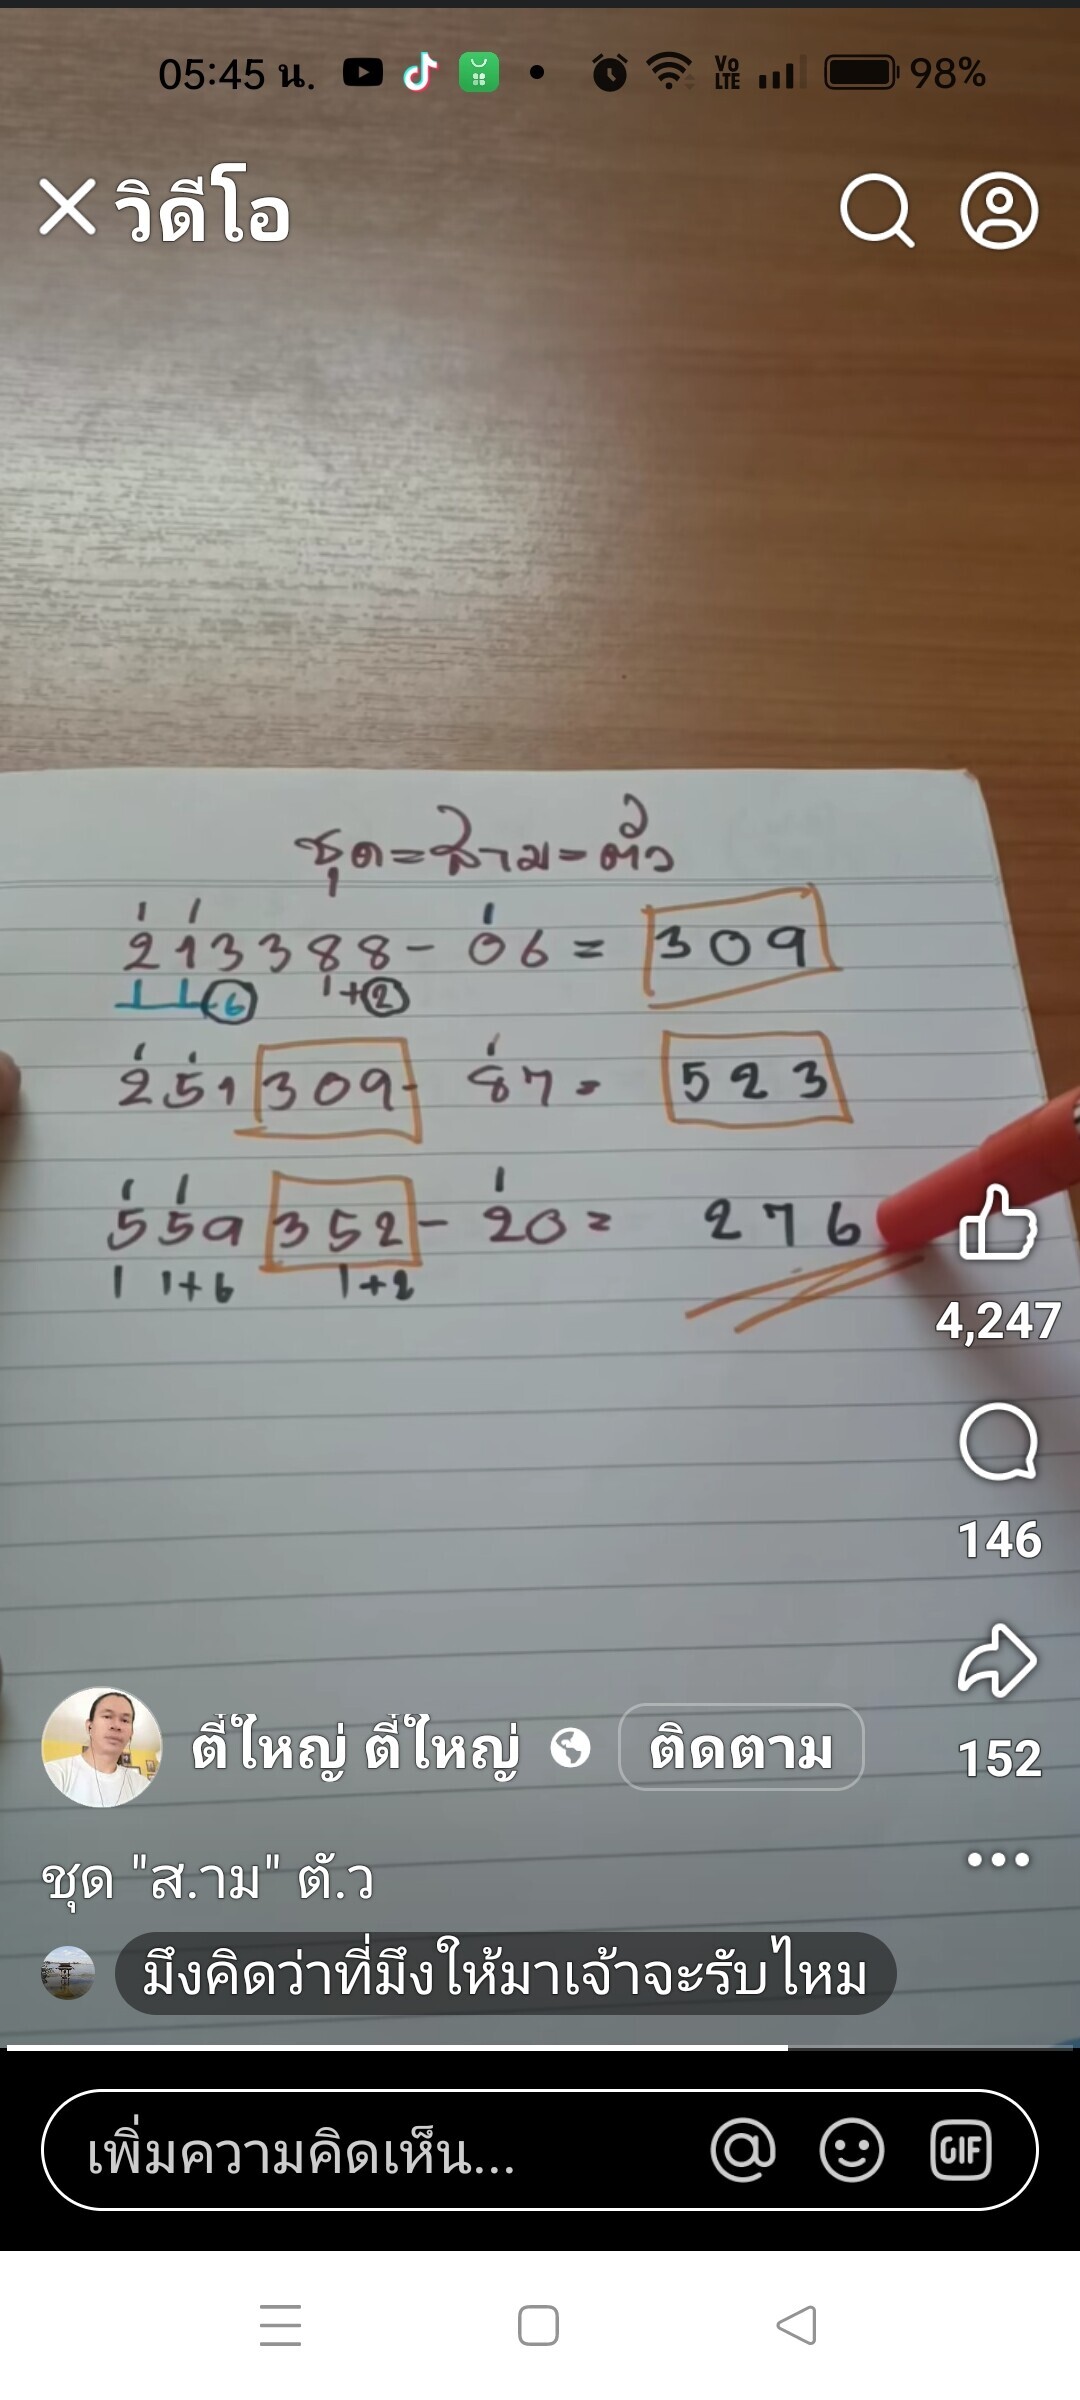 05:45 น. Vo LTE 98%
วิดีโอ
ชุด=สาม=ตัว
1 1 1
213388- 06 = 309
1 1 6 1+2
1 1 1
251 309- 87= 523
1 1 1
559 352- 20= 276
1 1+6 1+2
4,247
146
152
ตี๋ใหญ่ ตี๋ใหญ่ ติดตาม
ชุด "ส.าม" ตั.ว
มึงคิดว่าที่มึงให้มาเจ้าจะรับไหม
เพิ่มความคิดเห็น... @ GIF